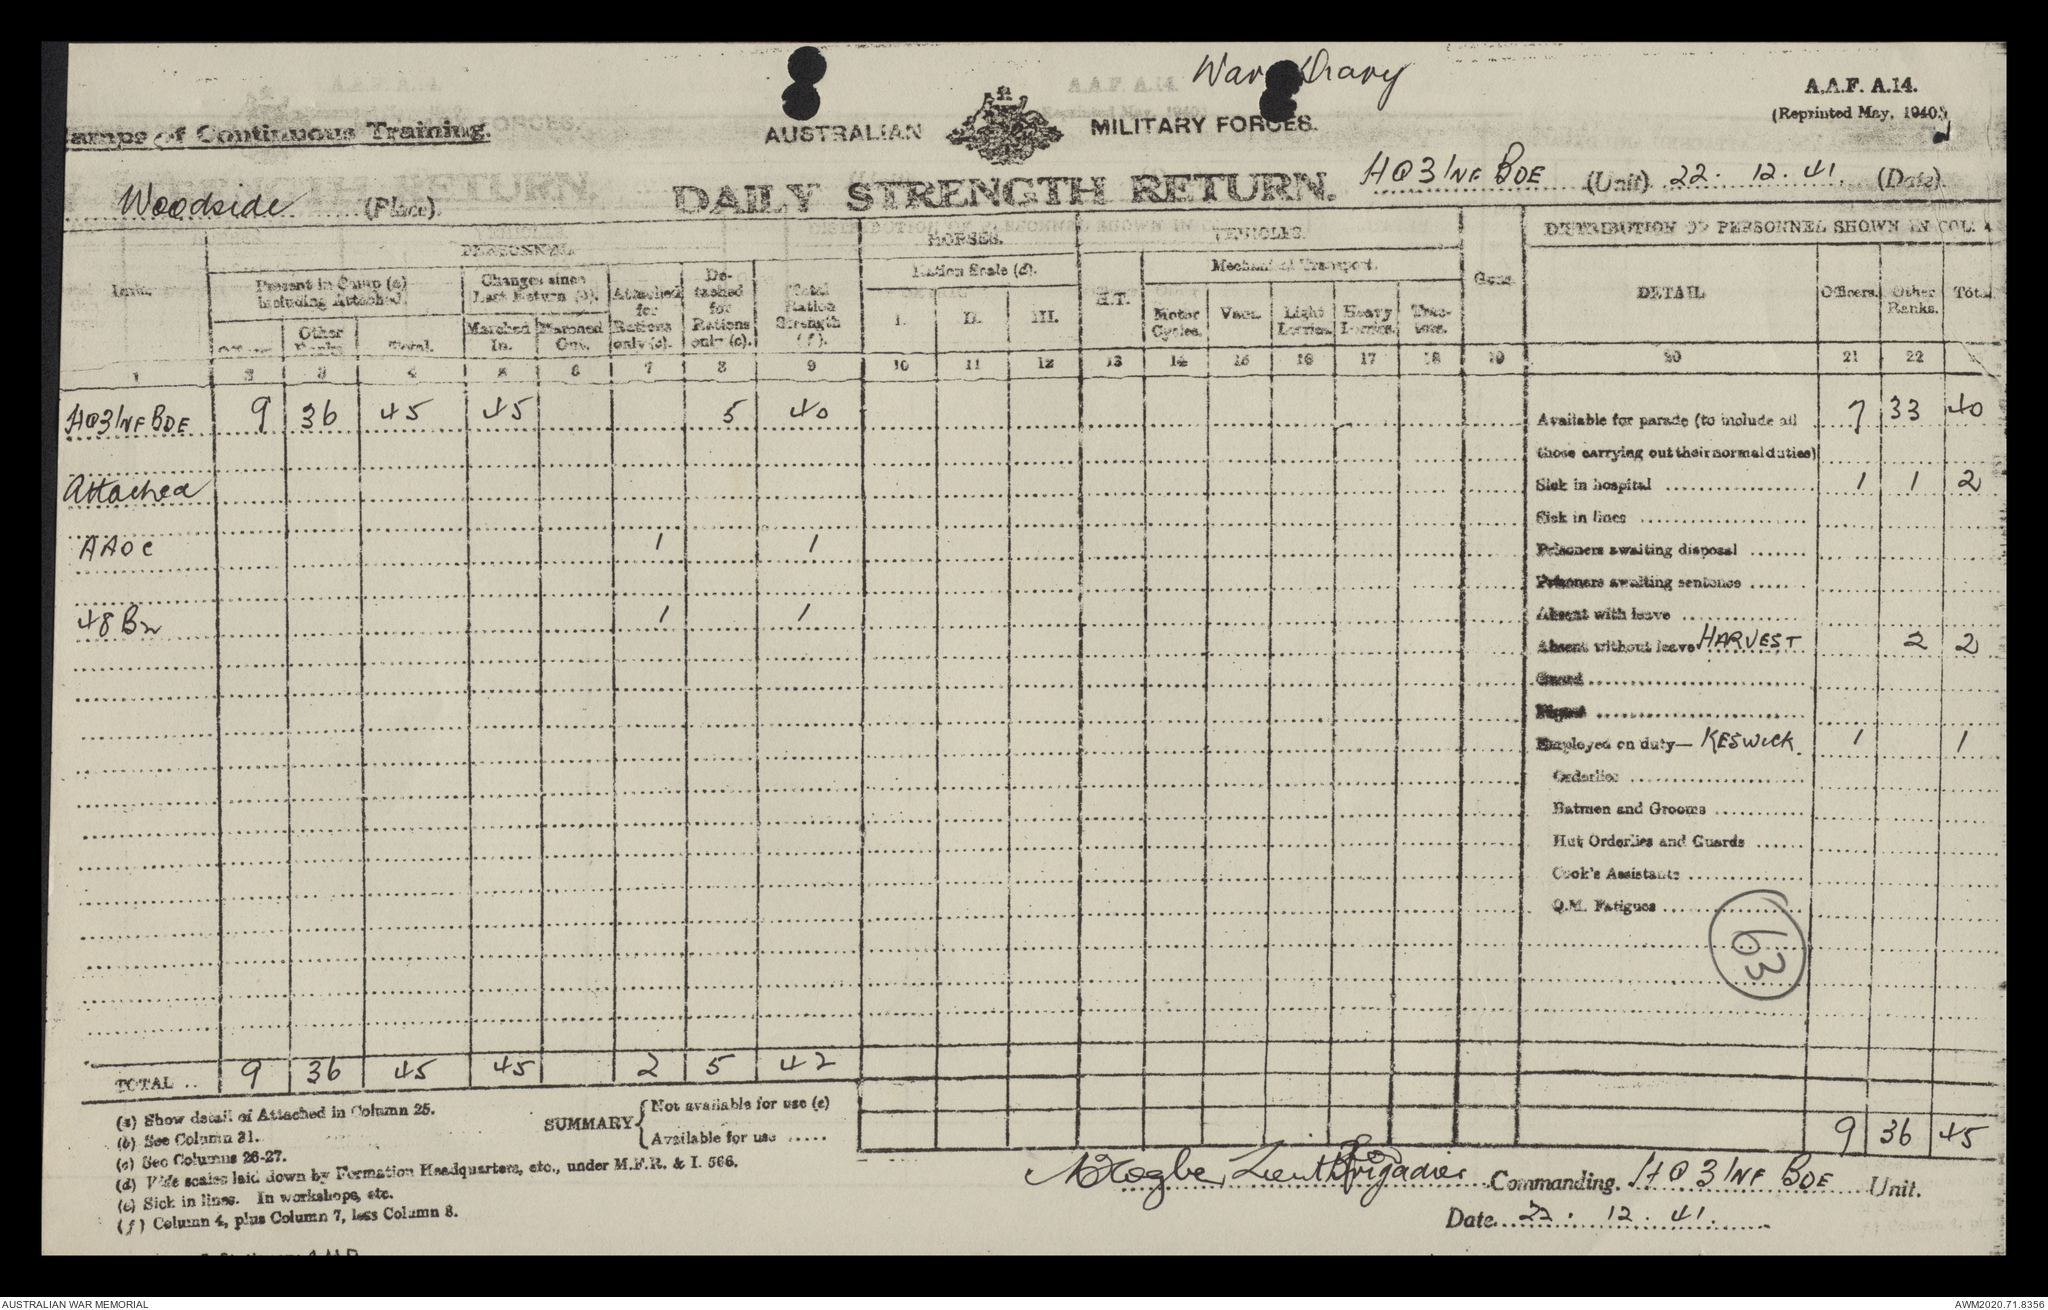 War Diary
A.A.F. A.14.
(Reprinted May, 1940.)
Camps of Continuous Training.
AUSTRALIAN MILITARY FORCES.
Woodside (Place). DAILY STRENGTH RETURN. HQ 3 INF BDE (Unit) 22. 12. 41. (Date).
PERSONNEL. HORSES. VEHICLES. DISTRIBUTION OF PERSONNEL SHOWN IN COL. 4
Unit. Present in Camp (a) including Attached. Changes since Last Return (b). Attached for Rations only (c). Detached for Rations only (c). Total Ration Strength (f). Ration Scale (d). H.T. Mechanical Transport. Guns. DETAIL Officers. Other Ranks. Total
Other Ranks. Total. Marched In. Marched Out. I. II. III. Motor Cycles. Vans. Light Lorries. Heavy Lorries. Tractors.
1 2 3 4 5 6 7 8 9 10 11 12 13 14 15 16 17 18 19 20 21 22
HQ 3 INF BDE 9 36 45 45 5 40 Available for parade (to include all 7 33 40
those carrying out their normal duties)
Attached Sick in hospital 1 1 2
Sick in lines
AAOC 1 1 Prisoners awaiting disposal
Prisoners awaiting sentence
48 Bn 1 1 Absent with leave
Absent without leave HARVEST 2 2
Guard
Piquet
Employed on duty— KESWICK. 1 1
Orderlies
Batmen and Grooms
Hut Orderlies and Guards
Cook's Assistants
Q.M. Fatigues
63
TOTAL .. 9 36 45 45 2 5 42
(a) Show detail of Attached in Column 25. SUMMARY Not available for use (e)
(b) See Column 31. Available for use ..... 9 36 45
(c) See Columns 26-27.
(d) Vide scales laid down by Formation Headquarters, etc., under M.F.R. & I. 566.
(e) Sick in lines. In workshops, etc.
(f) Column 4, plus Column 7, less Column 8.
Lieut Brigadier Commanding. HQ 3 INF BDE Unit.
Date. 22. 12. 41.
AUSTRALIAN WAR MEMORIAL AWM2020.71.8356